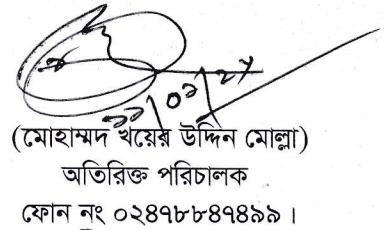 (মোহাম্মদ খয়ের উদ্দিন মোল্লা)
অতিরিক্ত পরিচালক
ফোন নং ০২৪৭৮৮৪৭৪৯৯।